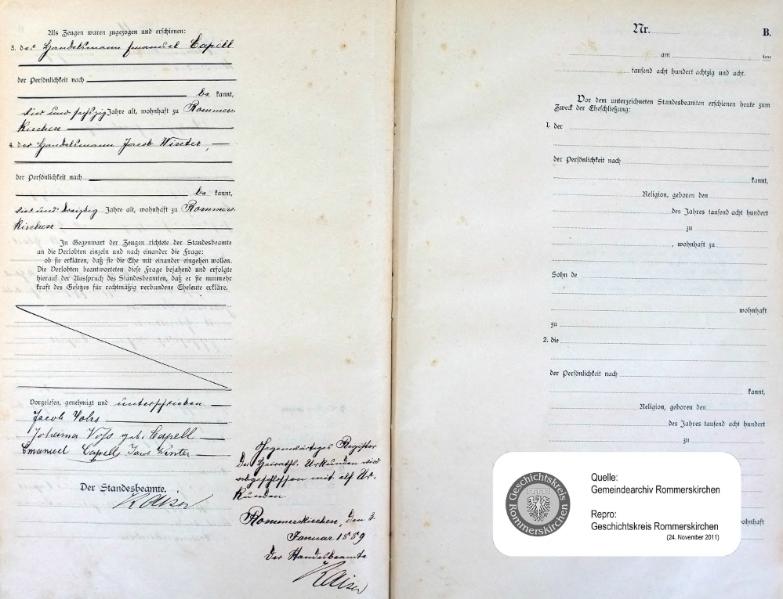 Als Zeugen waren zugezogen und erschienen:
3. der Handelsmann Emanuel Capell
der Persönlichkeit nach
be kannt,
vier und sechzig Jahre alt, wohnhaft zu Rommers
kirchen
4. der Handelsmann Jacob Winter,
der Persönlichkeit nach
be kannt,
und dreizig Jahre alt, wohnhaft zu Rommers
kirchen
In Gegenwart der Zeugen richtete der Standesbeamte
an die Verlobten einzeln und nach einander die Frage:
ob sie erklären, daß sie die Ehe mit einander eingehen wollen.
Die Verlobten beantworteten diese Frage bejahend und erfolgte
hierauf der Ausspruch des Standesbeamten, daß er sie nunmehr
kraft des Gesetzes für rechtmäßig verbundene Eheleute erkläre.
Vorgelesen, genehmigt und unterschrieben
Jacob Vohs
Johanna Voß geb. Capell
Emanuel Capell Jacob Winter
Der Standesbeamte.
Kaiser
Gegenwärtiges Register
Der Urkunden wird
abgeschlossen mit elf Ur-
kunden
Rommerskirchen, den 2.
Januar 1889
Der Standesbeamte
Kaiser
Nr. B.
am ten
tausend acht hundert achtzig und acht.
Vor dem unterzeichneten Standesbeamten erschienen heute zum
Zweck der Eheschließung:
1. der
der Persönlichkeit nach
kannt,
Religion, geboren den
des Jahres tausend acht hundert
zu
, wohnhaft zu
Sohn de
wohnhaft
zu
2. die
der Persönlichkeit nach
kannt,
Religion, geboren den
des Jahres tausend acht hundert
zu
wohnhaft
Geschichtskreis
Rommerskirchen
Quelle:
Gemeindearchiv Rommerskirchen
Repro:
Geschichtskreis Rommerskirchen
(24. November 2011)